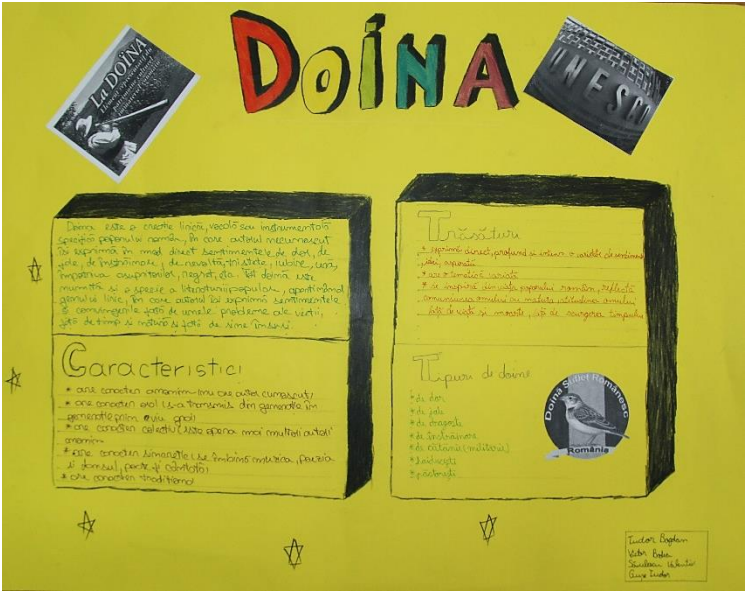 DOINA
La DOINA
Element reprezentativ du
UNESCO
Doina este o creatie lirică, vocală sau instrumentală
specifică poporului român, în care autorul necunoscut
își exprimă în mod direct sentimentele de dor, de
jale, de înstrăinare, de revoltă, tristete, iubire, ură,
împotriva asupritorilor, regret, etc. Tot doină este
numită și o specie a literaturii populare, aparținând
genului liric, în care autorul își exprimă sentimentele
și convingerile față de unele probleme ale vieții,
față de timp și natură și față de sine însuși.
Caracteristici
* are caracter anonim (nu are autor cunoscut)
* are caracter oral (s-a transmis din generatie în
generatie prin viu grai)
* are caracter colectiv (este opera mai multor autori
anonim
* are caracter sincretic (se îmbină muzica, poezia
și dansul, poate fi cântată)
* are caracter traditional
Trăsături
* exprimă direct, profund si intens o varietate de sentimente
idei, aspiratii
* are o tematică variată
* se inspiră din viața poporului român, reflectă
comuniunea omului cu natura, atitudinea omului
față de viață si moarte, față de scurgerea timpului
Tipuri de doine
* de dor
* de jale
* de dragoste
* de înstrăinare
* de cătănie (militărie)
* haiducești
* păstorești
Doina Suflet Românesc
România
Tudor Bogdan
Victor Badea
Valentin
Tudor